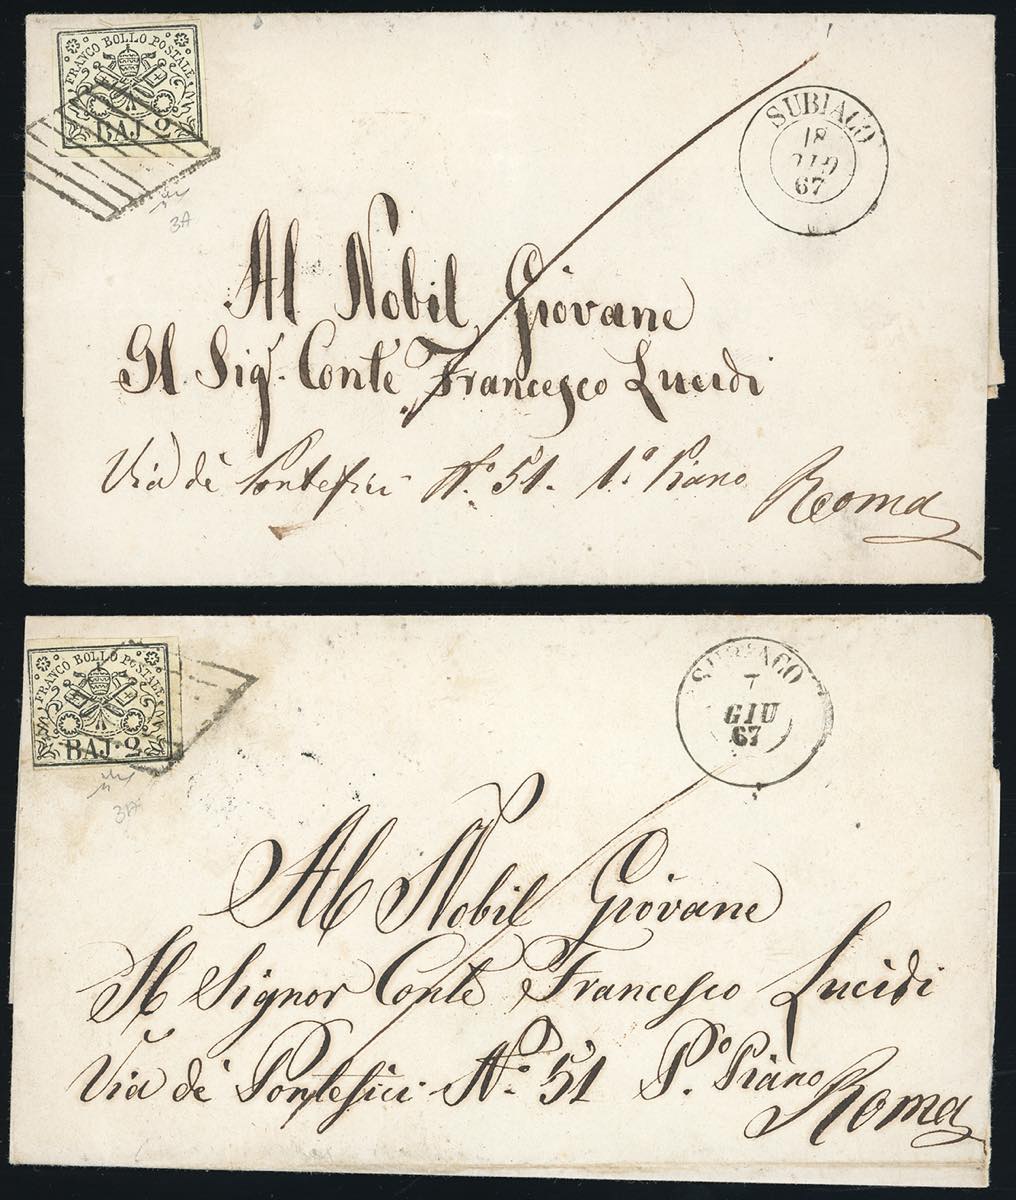 FRANCO BOLLO POSTALE
BAJ 2
3A
SUBIACO
18
67
Al Nobil Giovane
Il Sig.r Conte Francesco Lucidi
Via de Pontefici N.o 51. 1.o Piano
Roma
FRANCO BOLLO POSTALE
BAJ·2
3A
SUBIACO
7
GIU
67
Al Nobil Giovane
Il Signor Conte Francesco Lucidi
Via de Pontefici N.o 51 P.o Piano
Roma